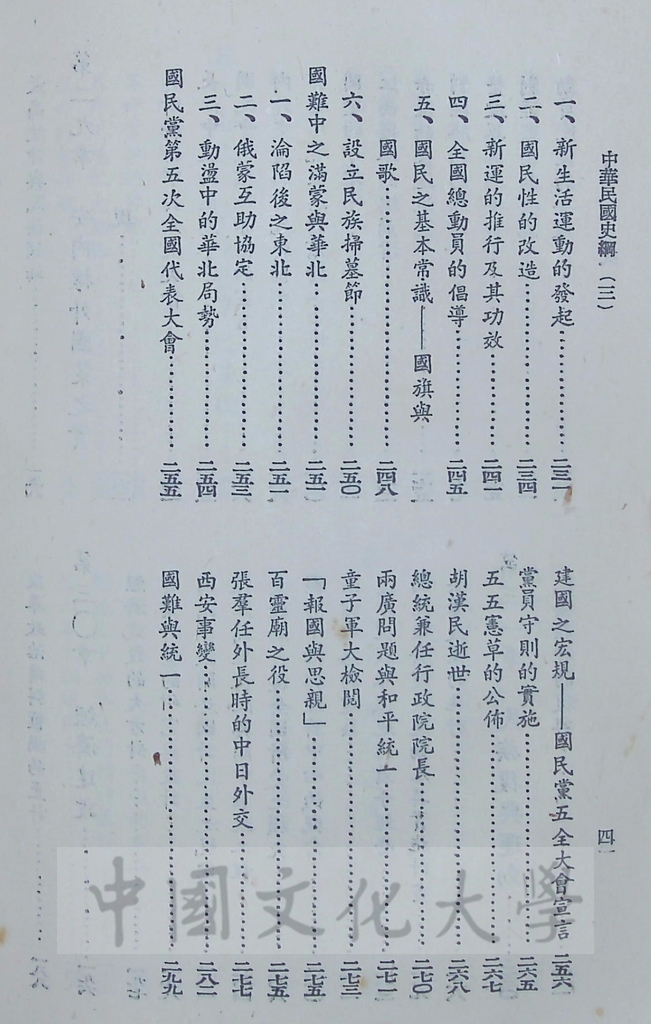 中華民國史綱（三）
一、新生活運動的發起…………二三一
二、國民性的改造…………二三四
三、新運的推行及其功效…………二四一
四、全國總動員的倡導…………二四五
五、國民之基本常識——國旗與
國歌…………二四八
六、設立民族掃墓節…………二五〇
國難中之滿蒙與華北…………二五一
一、淪陷後之東北…………二五一
二、俄蒙互助協定…………二五三
三、動盪中的華北局勢…………二五四
國民黨第五次全國代表大會…………二五五
四
建國之宏規——國民黨五全大會宣言 二五六
黨員守則的實施…………二六五
五五憲草的公佈…………二六七
胡漢民逝世…………二六八
總統兼任行政院院長…………二七〇
兩廣問題與和平統一…………二七一
童子軍大檢閱…………二七三
「報國與思親」…………二七五
百靈廟之役…………二七五
張羣任外長時的中日外交…………二七七
西安事變…………二八一
國難與統一…………二九九
中國文化大學